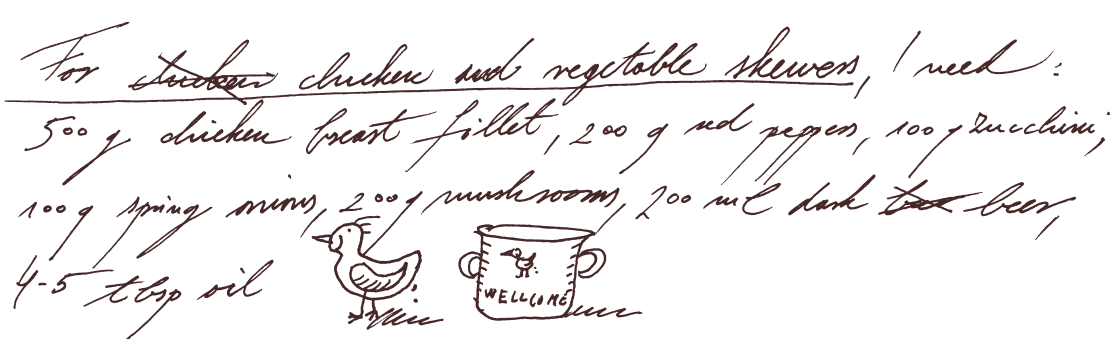 For chicken chicken and vegetable skewers, I need :
500 g chicken breast fillet, 200 g red peppers, 100 g zucchini,
100 g spring onions, 200 g mushrooms, 200 ml dark beer,
4-5 tbsp oil
WELLCOME